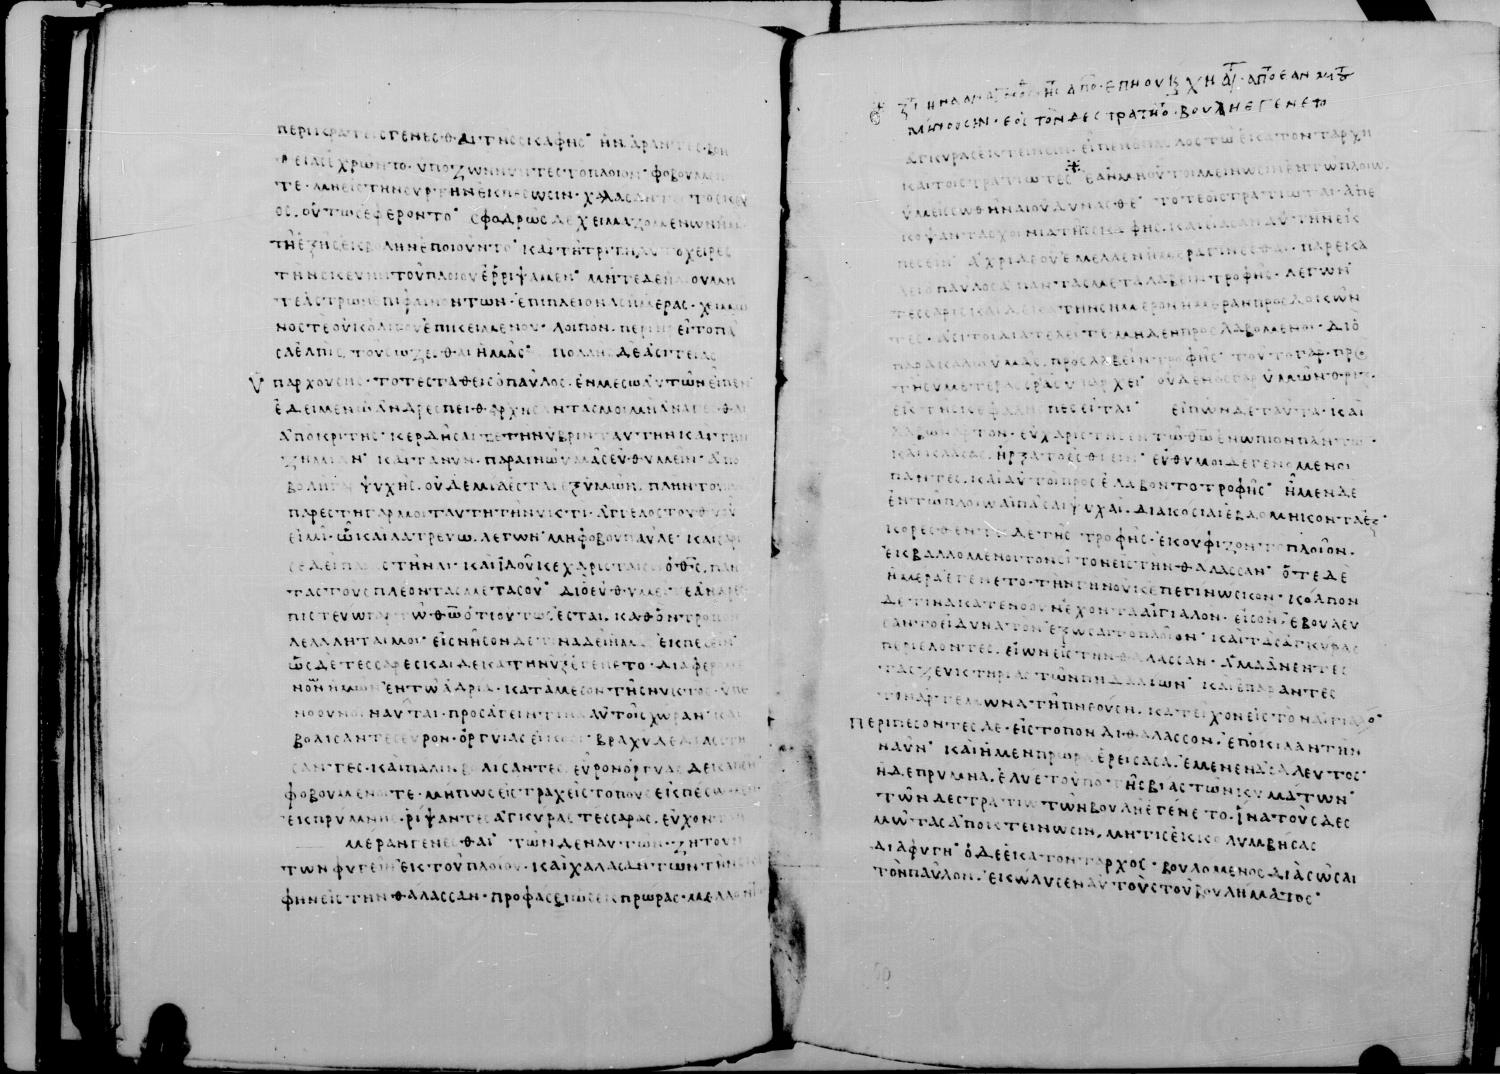 περικρατεις γενέσθαι της σκαφης· ἣν ἄραντες βοη
θείαις ἐχρῶντο· ὑποζωννύντες το πλοιον· φοβούμενοι
τε μὴ εἰς την συρτην ἐκπέσωσιν· χαλάσαντες το σκεῦ
ος. οὕτως ἐφέροντο· σφοδρῶς δε χειμαζομένων ἡμῶν
τῆ ἑξῆς ἐκβολην ἐποιοῦντο· καὶ τῆ τρίτη αὐτόχειρες
την σκευην τοῦ πλοίου ἐρρίψαμεν· μήτε δε ἡλίου μη
τε ἄστρων ἐπιφαινόντων· ἐπι πλείονας ἡμέρας· χειμῶ
νος τε οὐκ ὀλίγου ἐπικειμένου· λοιπον περιηρεῖτο πᾶ
σα ἐλπις τοῦ σώζεσθαι ἡμᾶς· πολλης δε ἀσιτείας
ὑπαρχούσης· τότε σταθεὶς ὁ παῦλος· ἐν μέσω αὐτῶν εἶπεν
ἔδει μεν ὦ ἄνδρες πειθαρχήσαντας μοι μὴ ἀνάγεσθαι
ἀπο κρίτης· κερδῆσαι τε την ὕβριν ταύτην και την
ζημίαν· και τανῦν παραινῶ ὑμᾶς εὐθυμεῖν· ἀπο
βολη γαρ ψυχῆς οὐδεμία ἔσται ἐξ ὑμῶν. πλην του
παρέστη γαρ μοι ταύτη τῆ νυκτι· ἄγγελος του θυ οὗ
εἰμι· ὧ και λατρεύω. λέγων· μη φοβοῦ παῦλε· καίσαρι
σε δεῖ παραστῆναι· και ἰδοὺ κεχάρισται σοι ὁ θς. παν
τας τους πλέοντας μετα σοῦ· διὸ εὐθυμεῖτε ἄνδρες
πιστεύω γαρ τῶ θω ὅτι οὕτως ἔσται. καθ ὃν τρόπον
λελάληται μοι· εἰς νῆσον δε τινα δεῖ ἡμᾶς ἐκπεσεῖν
ὡς δε τεσσαρεσκαιδεκατη νυξ ἐγένετο· διαφερομέ
νων ἡμῶν ἐν τῶ ἀδρία· κατα μέσον τῆς νυκτος· ὑπε
νοουν οἱ ναῦται· προσάγειν τινα αὐτοῖς χώραν· και
βολίσαντες εὗρον· ὀργυιας εἴκοσι· βραχυ δε διαστή
σαντες· και πάλιν βολίσαντες. εὗρον ὀργυας δεκαπέντε
φοβούμενοι τε· μηπως εἰς τραχεῖς τόπους ἐκπέσωμεν
ἐκ πρύμνης· ῥίψαντες ἀγκύρας τεσσαρας. εὔχοντο
μέραν γενέσθαι· τῶν δε ναυτῶν· ζητούν
των φυγεῖν ἐκ τοῦ πλοίου· και χαλασάντων την σκά
φην εἰς την θάλασσαν· προφάσει ὡς ἐκ πρώρας· μελλόντων
μίνωσιν· βουλη εγενετο
ἀγκύρας ἐκτείνειν· εἶπεν ὁ παῦλος τῶ ἑκατοντάρχη
και τοις στρατιώταις· ἐαν μη οὗτοι μείνωσιν ἐν τῶ πλοίω.
ὑμεῖς σωθῆναι οὐ δύνασθε· τότε οἱ στρατιῶται ἀπέ
κοψαν τα σχοινία της σκάφης. και εἴασαν αὐτην ἐκ
πεσεῖν· ἄχρι δε οὗ ἔμελλεν ἡμέρα γίνεσθαι. παρεκά
λει ὁ παῦλος ἅπαντας μεταλαβεῖν τροφῆς· λέγων
τεσσαρεσκαιδεκάτην σήμερον ἡμέραν προσδοκῶν
τες· ἄσιτοι διατελεῖτε μηδεν προσλαβόμενοι· διὸ
παρακαλῶ ὑμᾶς. προσλαβεῖν τροφῆς· τοῦτο γαρ προ
της ὑμετέρας σρίας ὑπάρχει· οὐδενος γαρ ὑμῶν θριξ.
ἐκ τῆς κεφαλης πεσεῖται· εἰπων δε ταυτα· και
λαβων ἄρτον· εὐχαρίστησεν τῶ θω ἐνώπιον παντων·
και κλάσας. ἤρξατο ἐσθίειν· εὔθυμοι δε γενόμενοι
παντες. και αὐτοι προσελάβοντο τροφῆς· ἤμεν δε
ἐν τῶ πλοίω αἱ πᾶσαι ψυχαι. διακόσιαι ἑβδομήκοντα ἕξ·
κορεσθέντες δε της τροφῆς. ἐκούφιζον το πλοῖον.
ἐκβαλλόμενοι τον σῖτον εἰς την θάλασσαν· ὅτε δε
ἡμέρα ἐγένετο· την γῆν οὐκ ἐπεγίνωσκον· κόλπον
δε τινα κατενόουν ἔχοντα αἰγιαλον· εἰς ὃν. ἐβουλεύ
σαντο εἰ δυνατον ἐξῶσαι το πλοῖον· και τας ἀγκύρας
περιελόντες. εἴων εἰς την θάλασσαν· ἅμα ἀνέντες
τας ζευκτηρίας τῶν πηδαλίων· και ἐπάραντες
τον ἀρτέμωνα τῆ πνεούση. κατεῖχον εἰς τον αἰγιαλό·
Περιπεσόντες δε· εἰς τόπον διθάλασσον. ἐπόκιλαν την
ναῦν· και ἡ μεν πρώρα ἐρείσασα. ἔμενεν ἀσάλευτος·
ἡ δε πρυμνα. ἐλύετο ὑπο τῆς βίας τῶν κυμάτων·
τῶν δε στρατιωτῶν βουλη ἐγένετο. ἵνα τους δεσ
μώτας ἀποκτείνωσιν. μη τις ἐκκολυμβήσας
διαφύγη· ὁ δε ἑκατόνταρχος· βουλόμενος διασῶσαι
τον παῦλον. ἐκώλυσεν αὐτοὺς τοῦ βουλήματος·